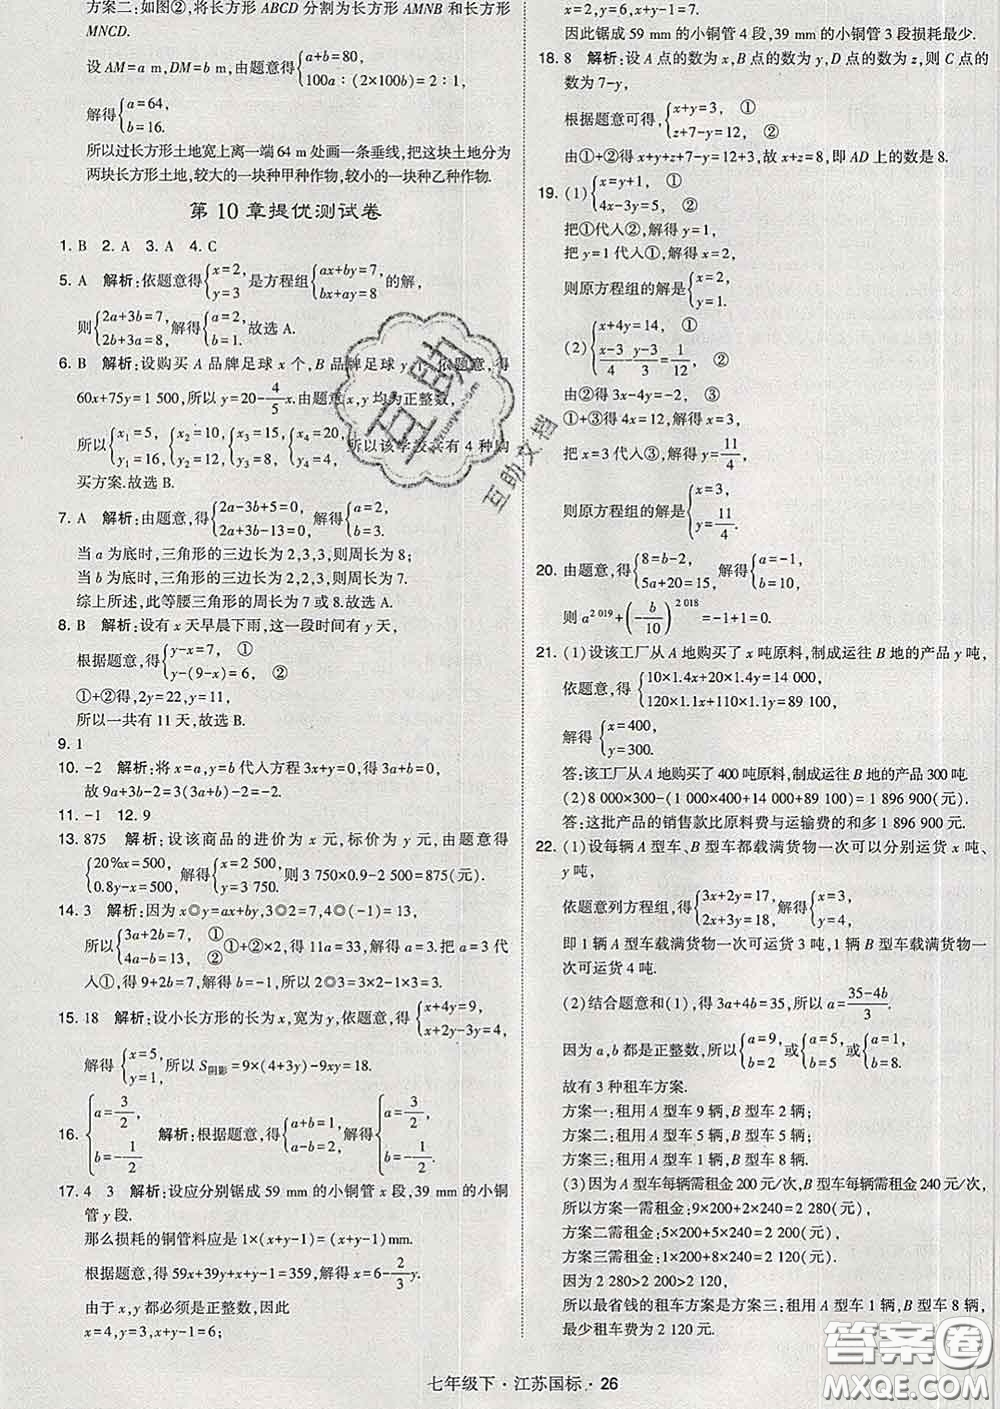 方案二:如图②,将长方形 ABCD 分割为长方形 AMNB 和长方形
MNCD.
设 AM=a m,DM=b m,由题意得{a+b=80, 100a:(2×100b)=2:1.
解得{a=64, b=16.
所以过长方形土地宽上离一端 64 m 处画一条垂线,把这块土地分为
两块长方形土地,较大的一块种甲种作物,较小的一块种乙种作物.
第 10 章提优测试卷
1. B 2. A 3. A 4. C
5. A 解析:依题意得{x=2, y=3 是方程组{ax+by=7, bx+ay=8 的解,
则{2a+3b=7, 2b+3a=8. 解得{a=2, b=1. 故选 A.
6. B 解析:设购买 A 品牌足球 x 个,B 品牌足球 y 依题意,得
60x+75y=1 500,所以 y=20-4/5x.由题意 x,y 均为正整数,
所以{x₁=5, y₁=16, {x₂=10, y₂=12, {x₃=15, y₃=8, {x₄=20, y₄=4. 所以该学校共有 4 种购
买方案.故选 B.
7. A 解析:由题意,得{2a-3b+5=0, 2a+3b-13=0. 解得{a=2, b=3.
当 a 为底时,三角形的三边长为 2,3,3,则周长为 8;
当 b 为底时,三角形的三边长为 2,2,3,则周长为 7.
综上所述,此等腰三角形的周长为 7 或 8.故选 A.
8. B 解析:设有 x 天早晨下雨,这一段时间有 y 天,
根据题意,得{y-x=7, ① y-(9-x)=6, ②
①+②得,2y=22,y=11,
所以一共有 11 天,故选 B.
9. 1
10. -2 解析:将 x=a,y=b 代入方程 3x+y=0,得 3a+b=0,
故 9a+3b-2=3(3a+b)-2=-2.
11. -1 12. 9
13. 875 解析:设该商品的进价为 x 元,标价为 y 元,由题意得
{20%x=500, 0.8y-x=500, 解得{x=2 500, y=3 750. 则 3 750×0.9-2 500=875(元).
14. 3 解析:因为 x◎y=ax+by,2◎3=7,4◎(-1)=13,
所以{3a+2b=7, ① 4a-b=13, ② ①+②×2,得 11a=33,解得 a=3.把 a=3 代
入①,得 9+2b=7,解得 b=-1,所以 2◎3=3×2-1×3=3.
15. 18 解析:设小长方形的长为 x,宽为 y,依题意,得{x+4y=9, x+2y-3y=4,
解得{x=5, y=1, 所以 S阴影=9×(4+3y)-9xy=18.
16. {a=3/2, b=-1/2 解析:根据题意,得{a+b=1, a-b=2. 解得{a=3/2, b=-1/2.
17. 4 3 解析:设应分别锯成 59 mm 的小铜管 x 段,39 mm 的小铜
管 y 段.
那么损耗的铜管料应是 1×(x+y-1)=(x+y-1)mm.
根据题意,得 59x+39y+x+y-1=359,解得 x=6-2/3y.
由于 x,y 都必须是正整数,因此
x=4,y=3,x+y-1=6;
x=2,y=6,x+y-1=7.
因此锯成 59 mm 的小铜管 4 段,39 mm 的小铜管 3 段损耗最少.
18. 8 解析:设 A 点的数为 x,B 点的数为 y,D 点的数为 z,则 C 点的
数为 7-y,
根据题意可得,{x+y=3, ① z+7-y=12, ②
由①+②得 x+y+z+7-y=12+3,故 x+z=8,即 AD 上的数是 8.
19. (1){x=y+1, ① 4x-3y=5, ②
把①代入②,解得 y=1,
把 y=1 代入①,解得 x=2,
则原方程组的解是{x=2, y=1.
(2){x+4y=14, ① (x-3)/4-(y-3)/3=1/12, ②
由②得 3x-4y=-2,③
①+③得 4x=12,解得 x=3,
把 x=3 代入③,解得 y=11/4,
则原方程组的解是{x=3, y=11/4.
20. 由题意,得{8=b-2, 5a+20=15, 解得{a=-1, b=10,
则 a^2 019+(-b/10)^2 018=-1+1=0.
21. (1)设该工厂从 A 地购买了 x 吨原料,制成运往 B 地的产品 y 吨,
依题意,得{10×1.4x+20×1.4y=14 000, 120×1.1x+110×1.1y=89 100,
解得{x=400, y=300.
答:该工厂从 A 地购买了 400 吨原料,制成运往 B 地的产品 300 吨.
(2)8 000×300-(1 000×400+14 000+89 100)=1 896 900(元).
答:这批产品的销售款比原料费与运输费的和多 1 896 900 元.
22. (1)设每辆 A 型车、B 型车都载满货物一次可以分别运货 x 吨、
y 吨,
依题意列方程组,得{3x+2y=17, 2x+3y=18, 解得{x=3, y=4,
即 1 辆 A 型车载满货物一次可运货 3 吨,1 辆 B 型车载满货物一
次可运货 4 吨.
(2)结合题意和(1),得 3a+4b=35,所以 a=(35-4b)/3.
因为 a,b 都是正整数,所以{a=9, b=2 或{a=5, b=5 或{a=1, b=8.
故有 3 种租车方案.
方案一:租用 A 型车 9 辆,B 型车 2 辆;
方案二:租用 A 型车 5 辆,B 型车 5 辆;
方案三:租用 A 型车 1 辆,B 型车 8 辆.
(3)因为 A 型车每辆需租金 200 元/次,B 型车每辆需租金 240 元/次,
所以方案一需租金:9×200+2×240=2 280(元),
方案二需租金:5×200+5×240=2 200(元),
方案三需租金:1×200+8×240=2 120(元).
因为 2 280>2 200>2 120,
所以最省钱的租车方案是方案三:租用 A 型车 1 辆,B 型车 8 辆,
最少租车费为 2 120 元.
七年级下·江苏国标·26
互助
互助文档
答案圈
MXQE.COM